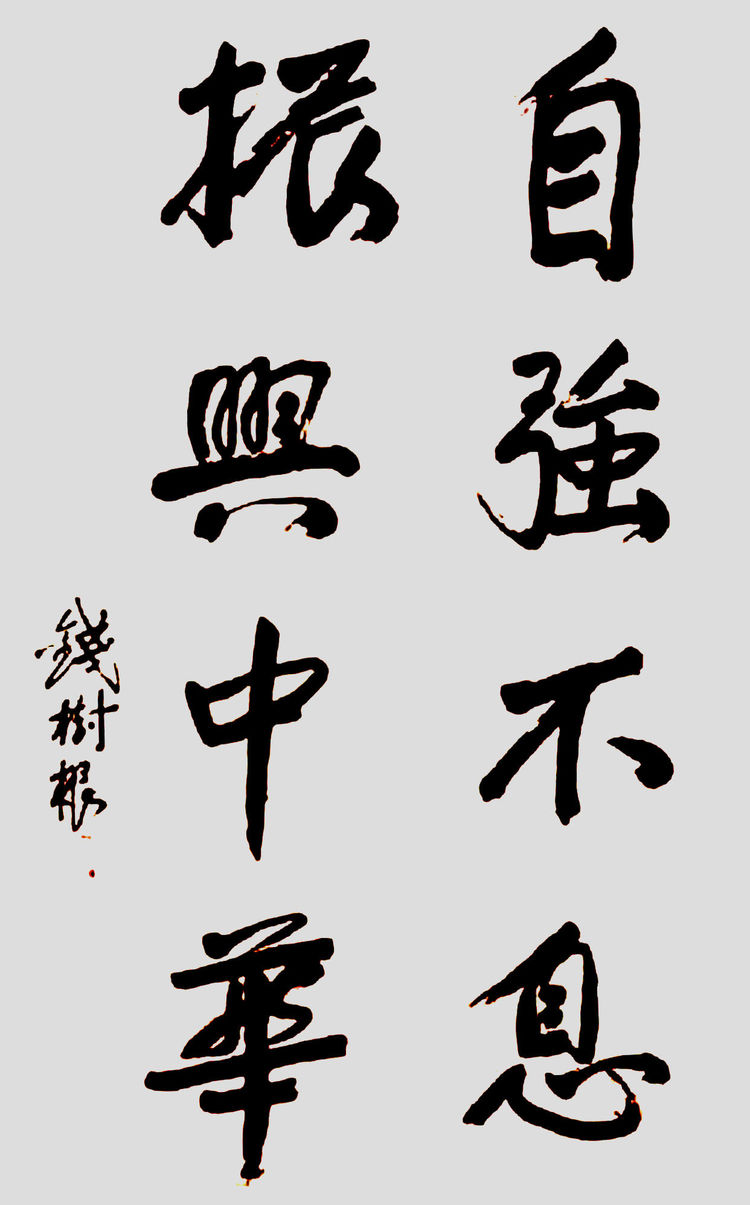 自強不息
振興中華
錢樹根